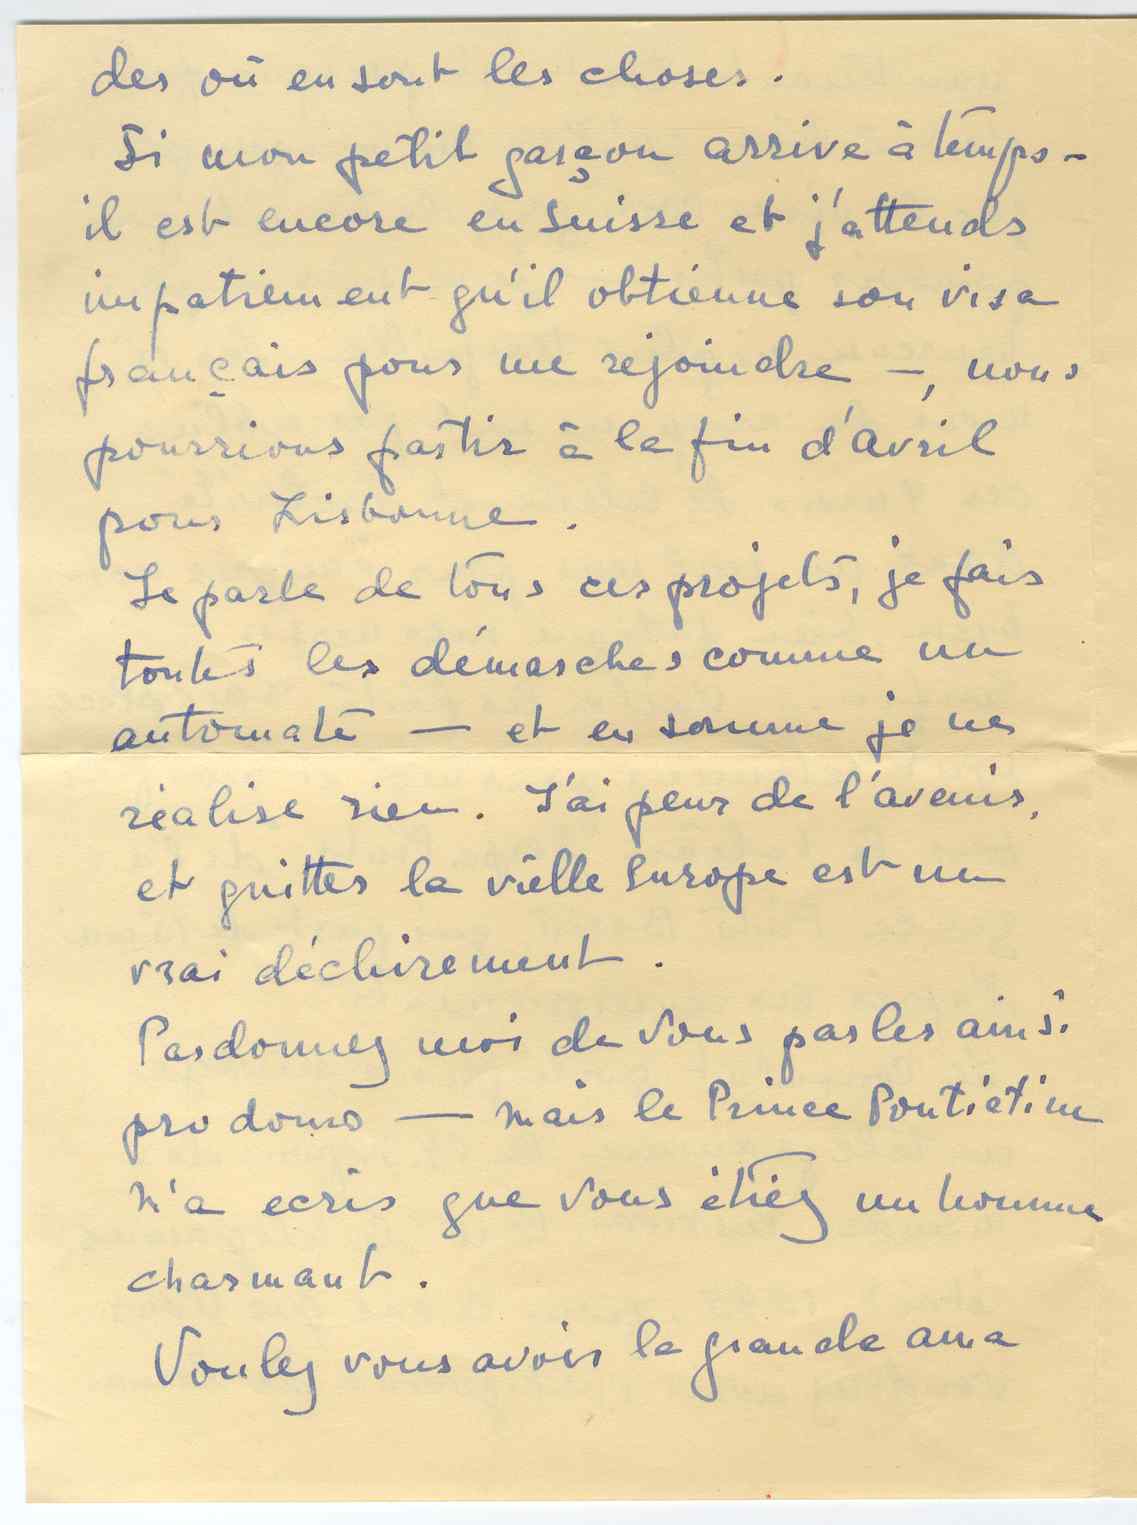 des où en sont les choses.
Si mon petit garçon arrive à temps -
il est encore en Suisse et j'attends
impatiemment qu'il obtienne son visa
français pour me rejoindre -, nous
pourrions partir à la fin d'Avril
pour Lisbonne.
Je parle de tous ces projets, je fais
toutes les démarches comme un
automate — et en somme je ne
réalise rien. J'ai peur de l'avenir,
et quitter la vielle Europe est un
vrai déchirement.
Pardonnez moi de vous parler ainsi
pro domo — mais le Prince
m'a ecris que vous étiez un homme
charmant.
Voulez vous avoir la grande ama